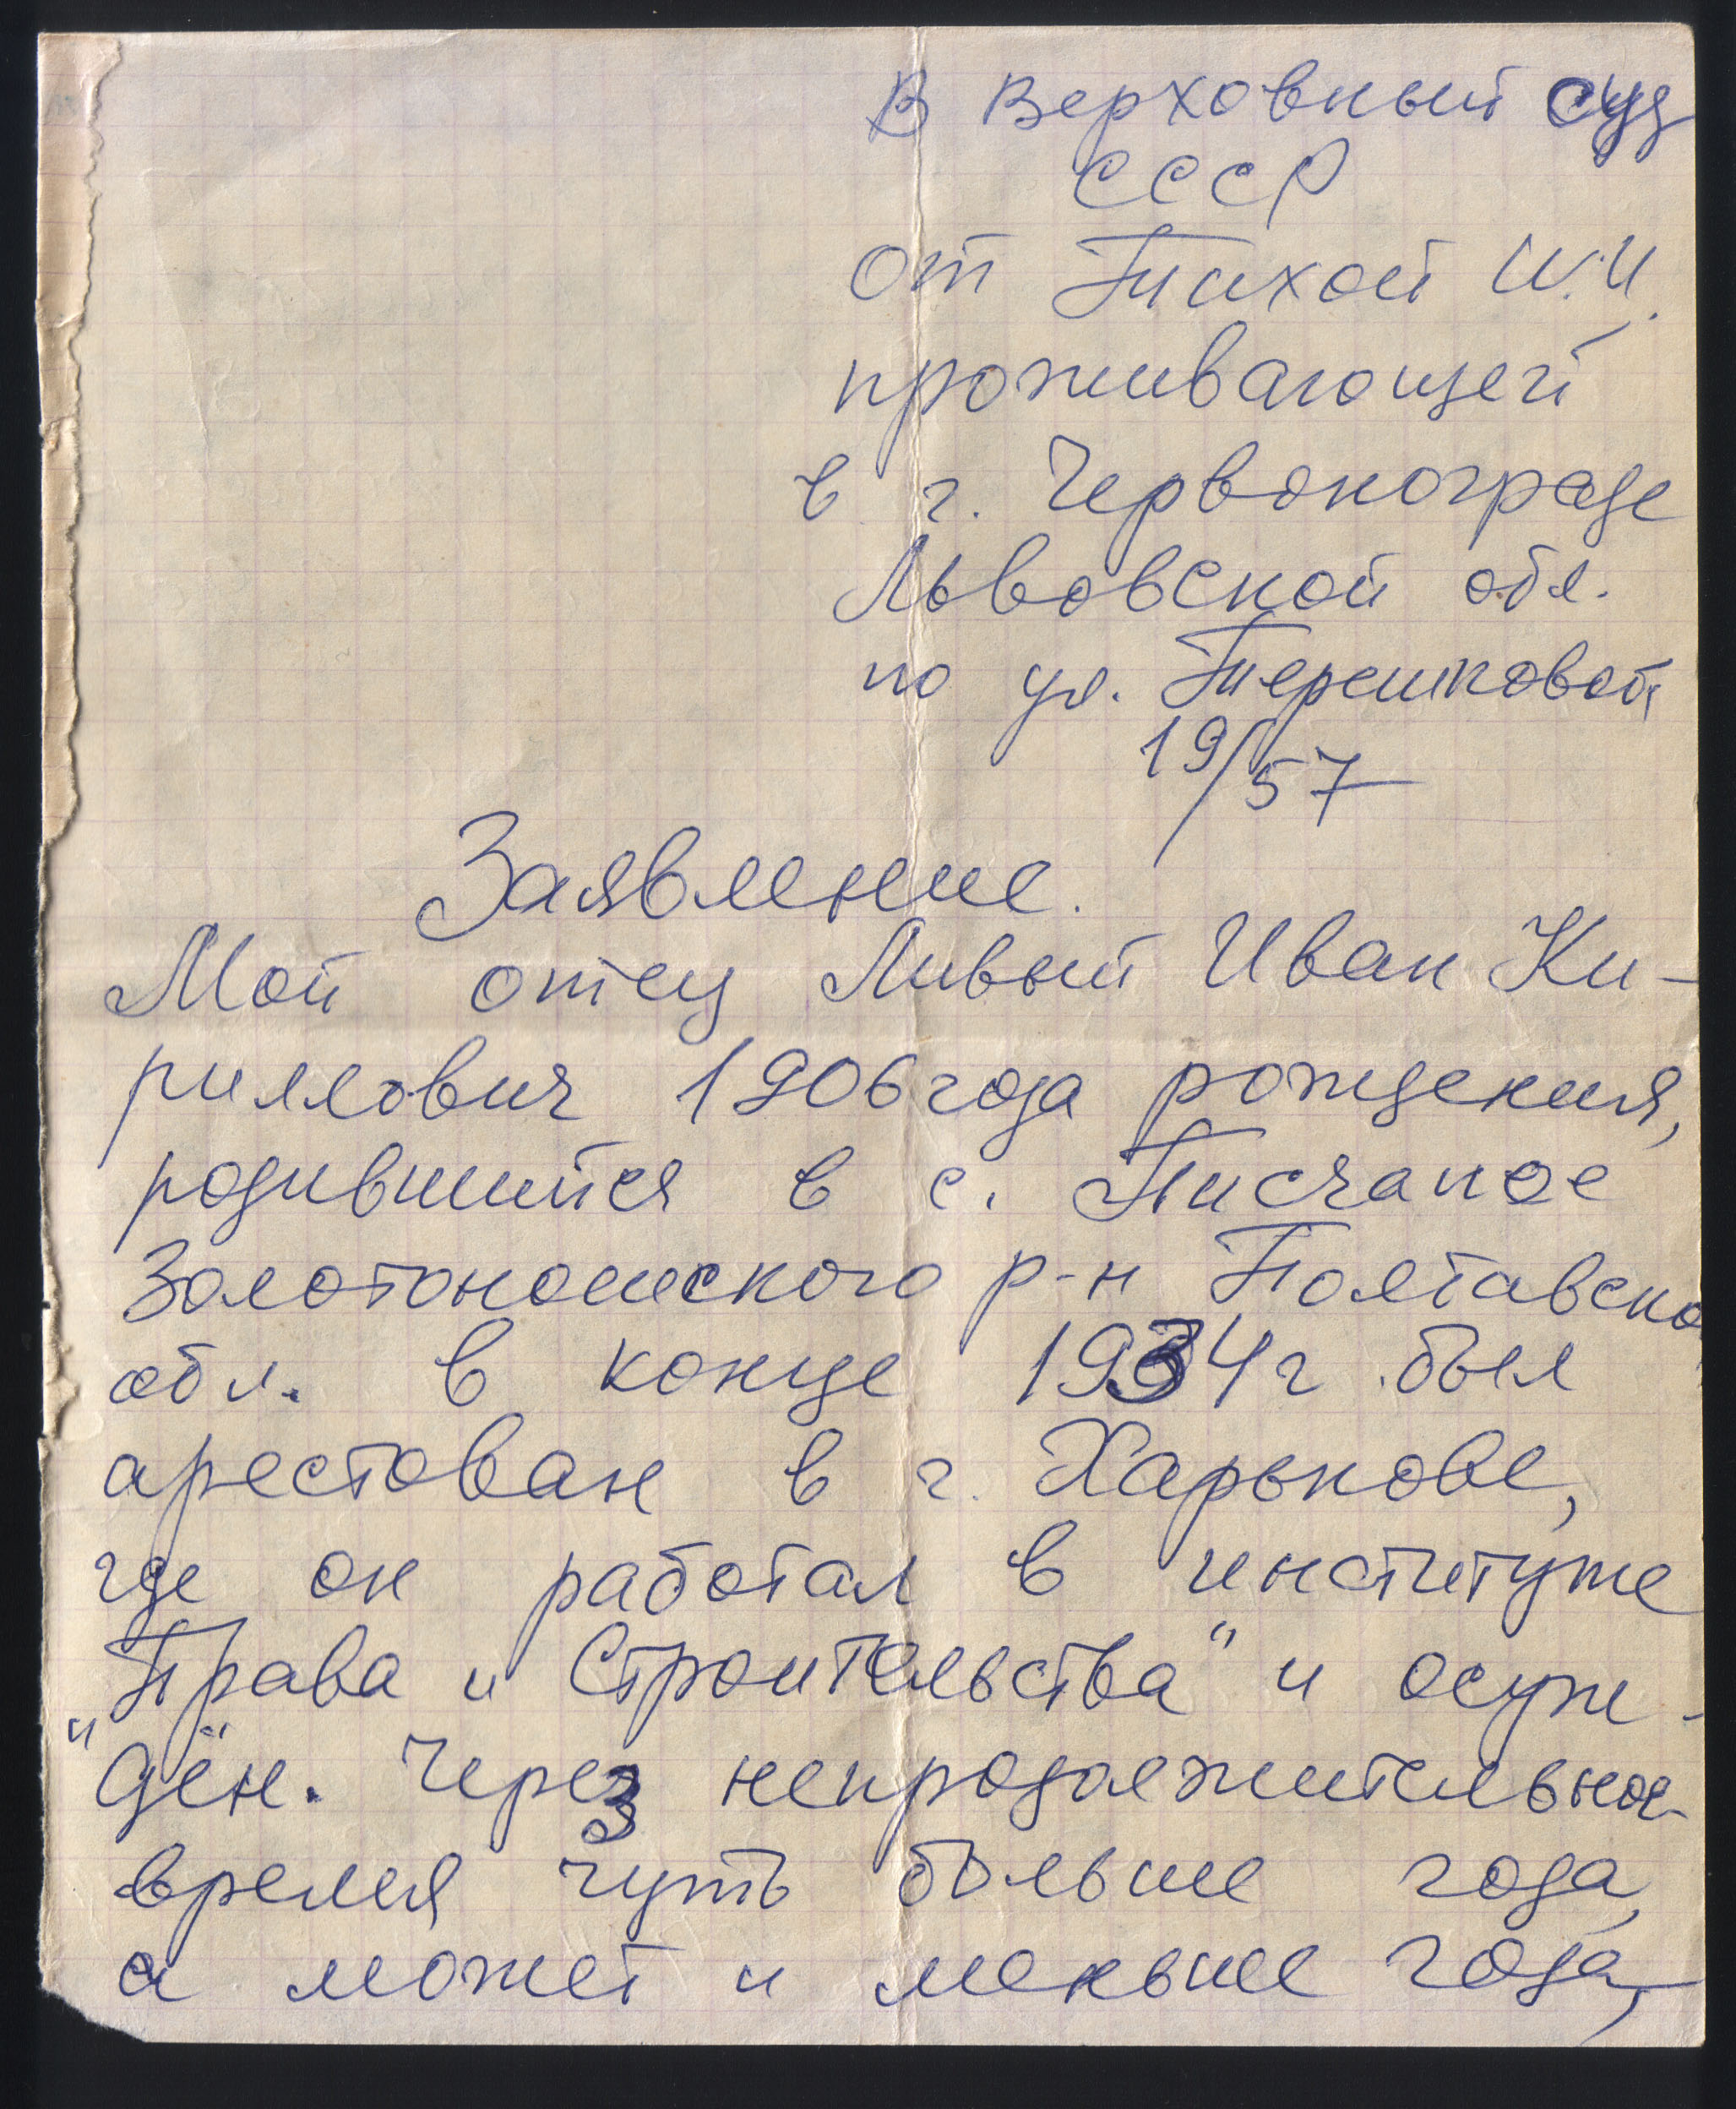 В Верховный суд
СССР
от Тихой И.И.
проживающей
в г. Червонограде
Львовской обл.
по ул. Терешковой
19/57
Заявление.
Мой отец Ливый Иван Ки-
риллович 1906 года рождения,
родившийся в с. Писчаное
Золотоношского р-н Полтавско
обл. в конце 1934 г был
арестован в г. Харькове,
где он работал в институте
"Права и Строительства" и осуж-
дён. Через непродолжительное
время чуть больше года,
а может и меньше года,